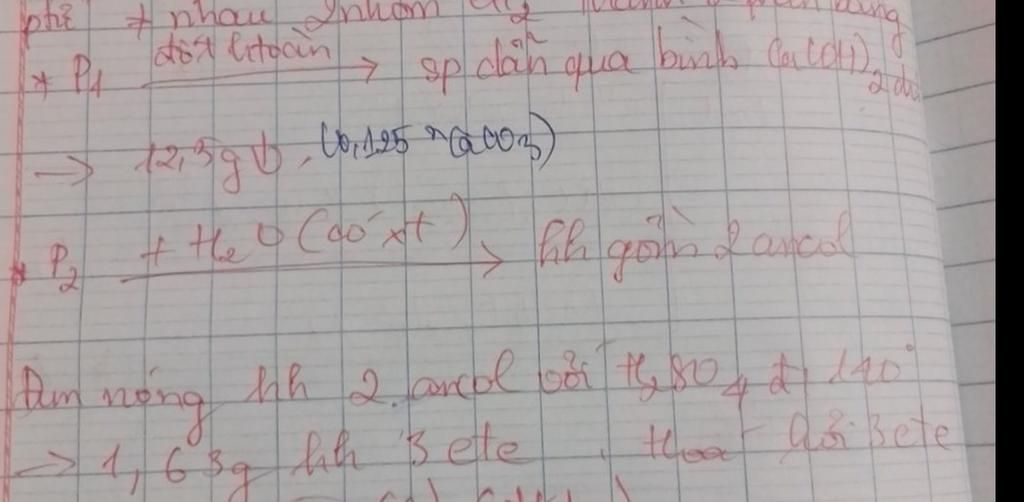 phê ≠ nhau 2 nhóm CH2
* P1 đốt ctoàn → sp dẫn qua bình Ca(OH)2 dư
→ 12,5g ↓. (0,125 CaCO3)
* P2 + H2O (có xt) → hh gồm 2 ancol
Đun nóng hh 2 ancol với H2SO4 đ, 140°
→ 1,63g hh 3 ete. Hoá 3 ete